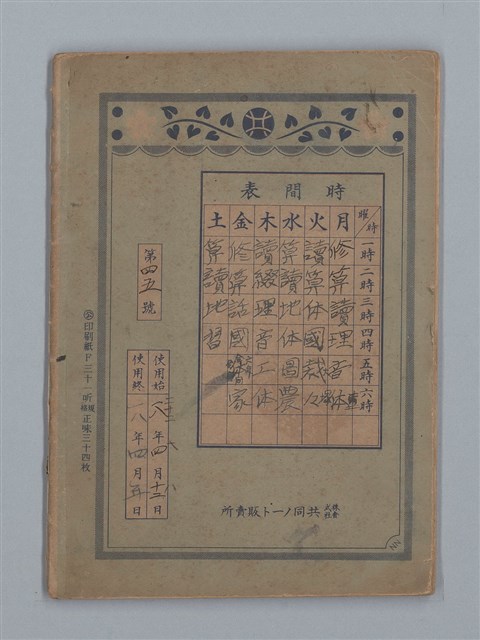 時間表
時／曜 月 火 水 木 金 土
一時 修 讀 算 讀 修 算
二時 算 算 讀 綴 算 讀
三時 讀 体 地 理 話 地
四時 理 國 体 音 國 習
五時 音 裁 圖 工
六時 体 々 農 体 家
第四五號
使用始 八年四月十三日
使用終 一八年四月 日
株式会社 共同ノート販賣所
印刷紙ド三十一听規格正味三十四枚
NN